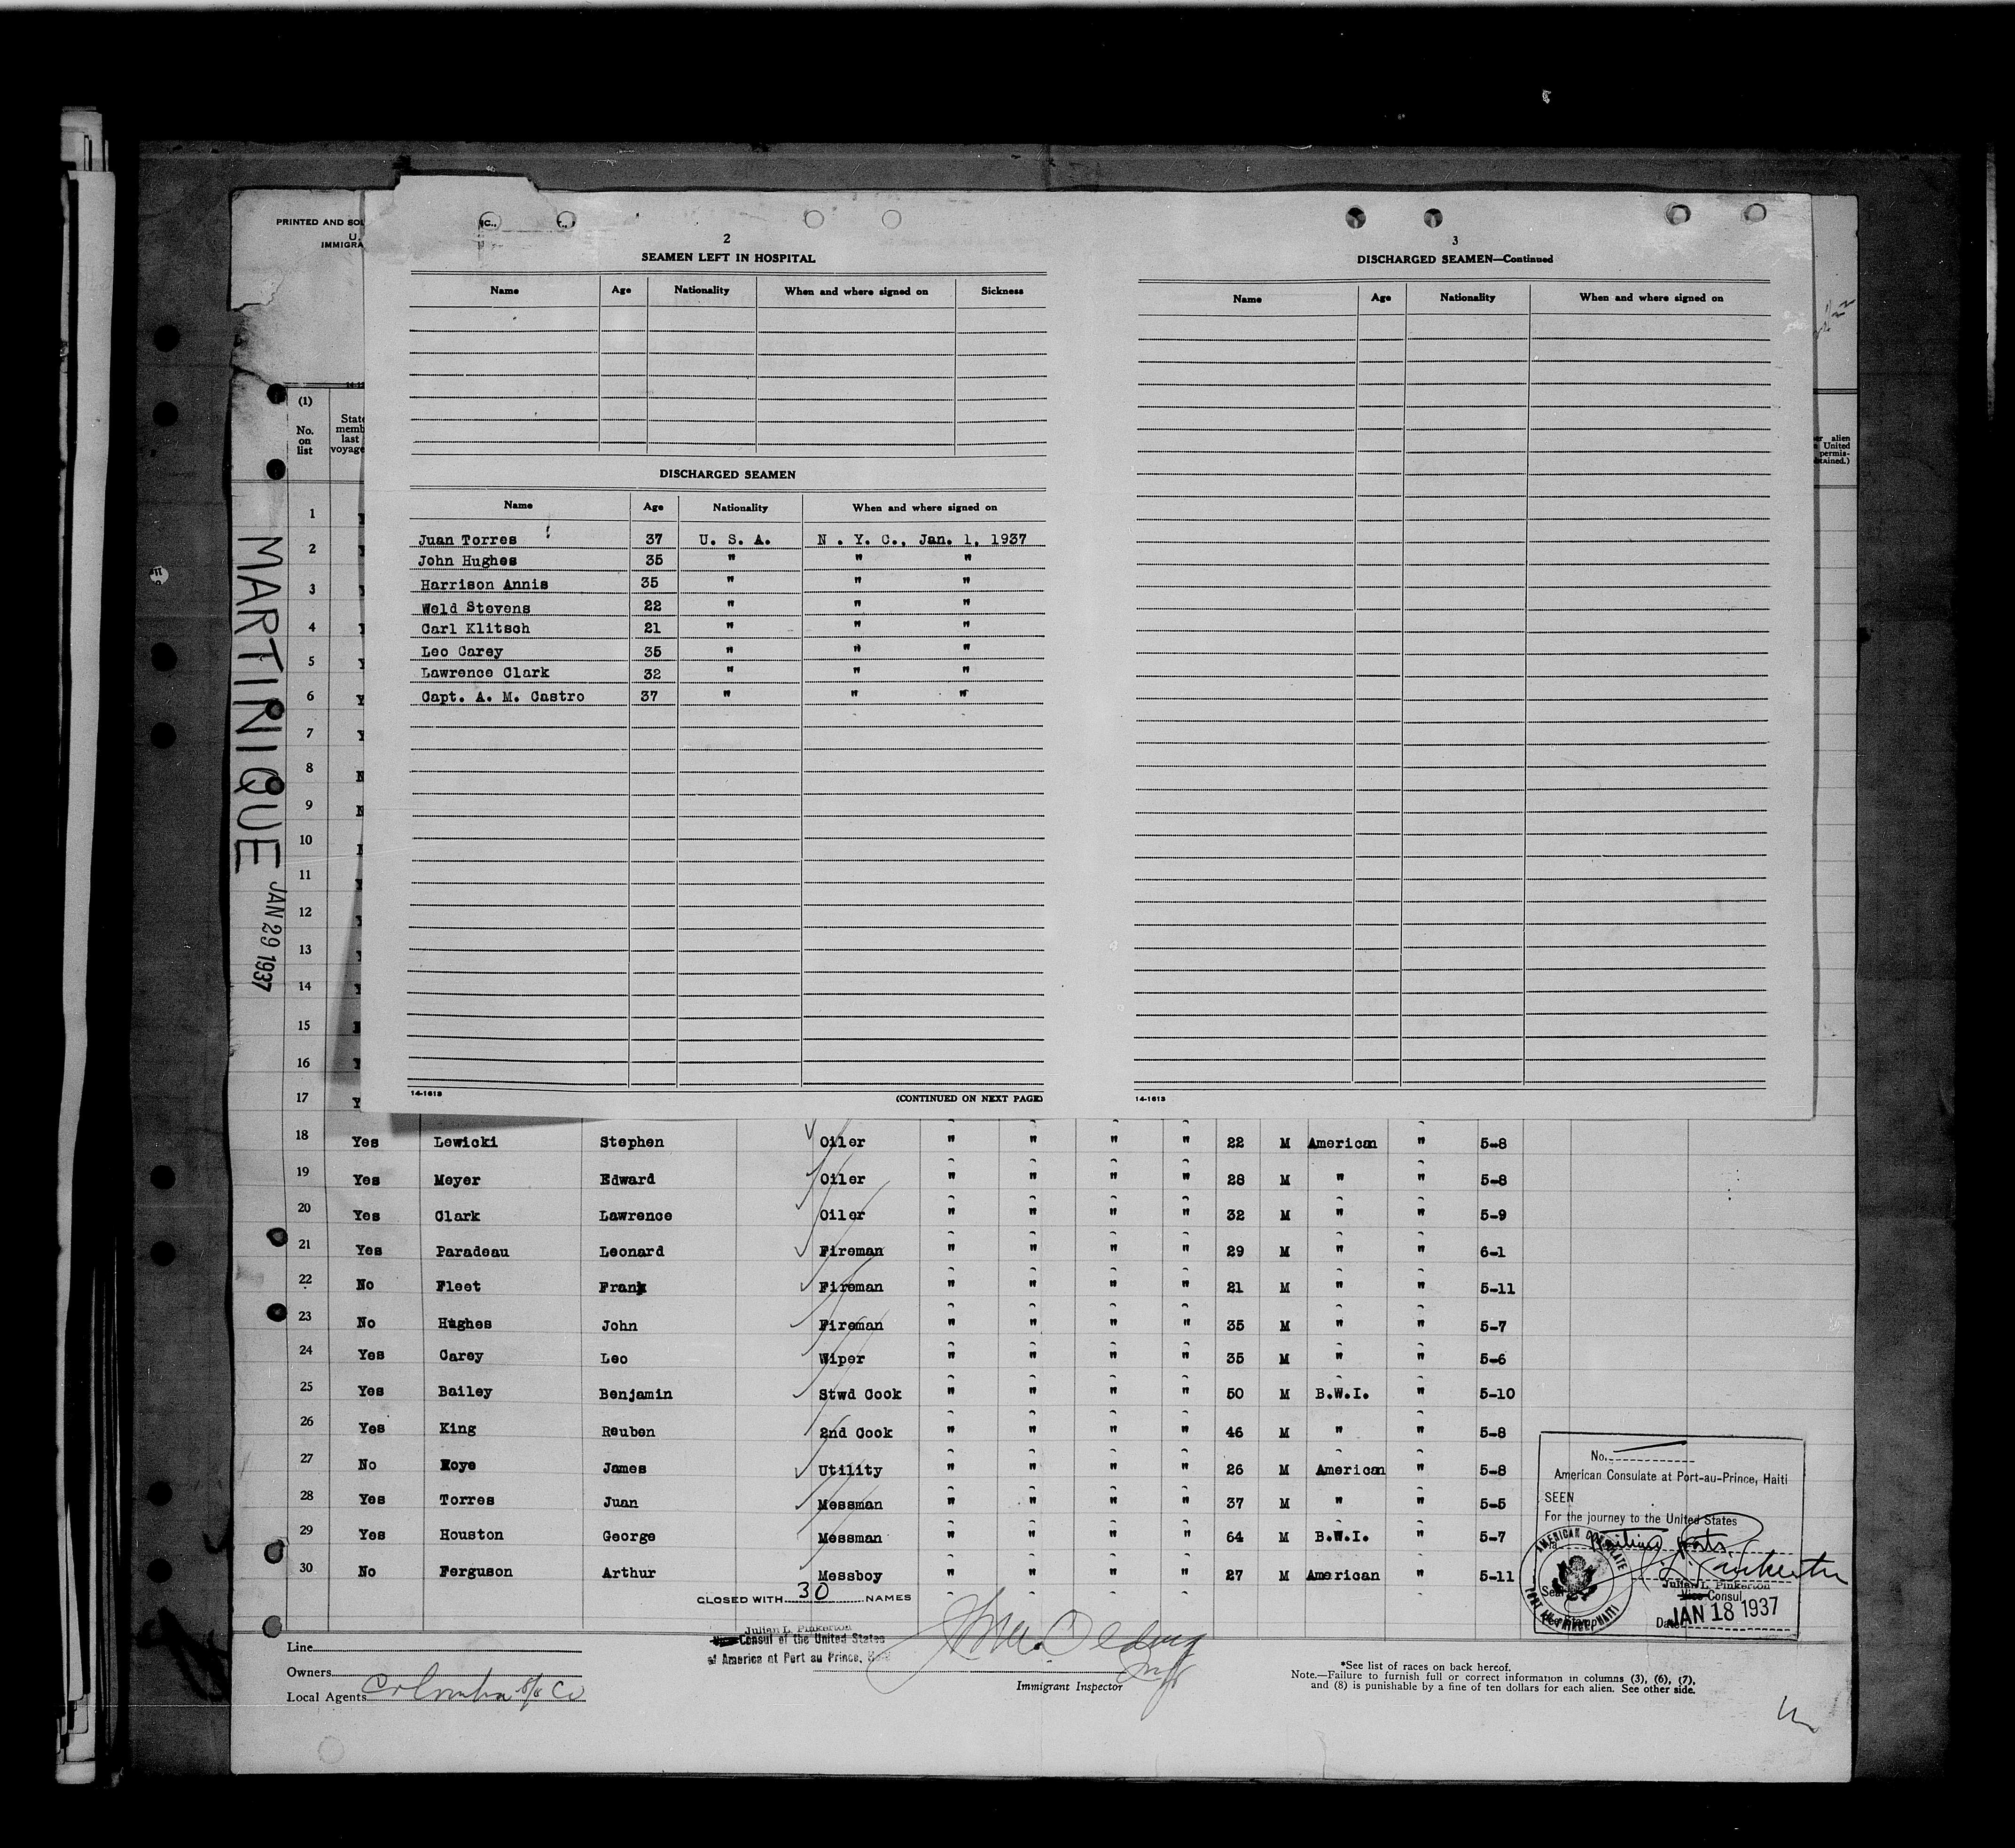 PRINTED AND SOL
U.
IMMIGRA
2
SEAMEN LEFT IN HOSPITAL
Name Age Nationality When and where signed on Sickness
DISCHARGED SEAMEN
Name Age Nationality When and where signed on
Juan Torres 37 U. S. A. N . Y. C., Jan. 1, 1937
John Hughes 35 " " "
Harrison Annis 35 " " "
Weld Stevens 22 " " "
Carl Klitsch 21 " " "
Leo Carey 35 " " "
Lawrence Clark 32 " " "
Capt. A. M. Castro 37 " " "
14-1613 (CONTINUED ON NEXT PAGE)
3
DISCHARGED SEAMEN—Continued
Name Age Nationality When and where signed on
14-1613
er alien
n United
permis-
tained.)
MARTINIQUE JAN 29 1937
(1)
No.
on
list
State
memb
last
voyage
1
2
3
4
5
6
7
8
9
10
11
12
13
14
15
16
17
18 Yes Lewicki Stephen Oiler " " " " 22 M American " 5-8
19 Yes Meyer Edward Oiler " " " " 28 M " " 5-8
20 Yes Clark Lawrence Oiler " " " " 32 M " " 5-9
21 Yes Paradeau Leonard Fireman " " " " 29 M " " 6-1
22 No Fleet Frank Fireman " " " " 21 M " " 5-11
23 No Hughes John Fireman " " " " 35 M " " 5-7
24 Yes Carey Leo Wiper " " " " 35 M " " 5-6
25 Yes Bailey Benjamin Stwd Cook " " " " 50 M B.W.I. " 5-10
26 Yes King Reuben 2nd Cook " " " " 46 M " " 5-8
27 No James Utility " " " " 26 M American " 5-8
28 Yes Torres Juan Messman " " " " 37 M " " 5-5
29 Yes Houston George Messman " " " " 64 M B.W.I. " 5-7
30 No Ferguson Arthur Messboy " " " " 27 M American " 5-11
CLOSED WITH 30 NAMES
No.
American Consulate at Port-au-Prince, Haiti
SEEN
For the journey to the United States
Julian L. Pinkerton
Vice Consul
Date JAN 18 1937
AMERICAN CONSULATE
Line
Owners
Local Agents Colombia S/S Co
Julian L. Pinkerton
Vice Consul of the United States
of America at Port au Prince,
Immigrant Inspector
*See list of races on back hereof.
Note.—Failure to furnish full or correct information in columns (3), (6), (7),
and (8) is punishable by a fine of ten dollars for each alien. See other side.